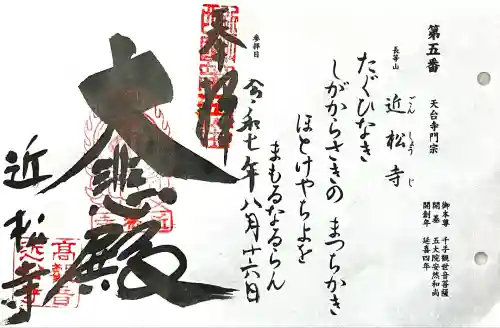 第五番
天台寺門宗
長等山
近松寺
ごんしょうじ
御本尊 千手観世音菩薩
開基 五大院安然和尚
開創年 延喜四年
たぐひなき
しがからさきの まつちかき
ほとけやちよを
まもるなるらん
参拝日
令和七年八月十六日
奉拝
大悲殿
近松寺